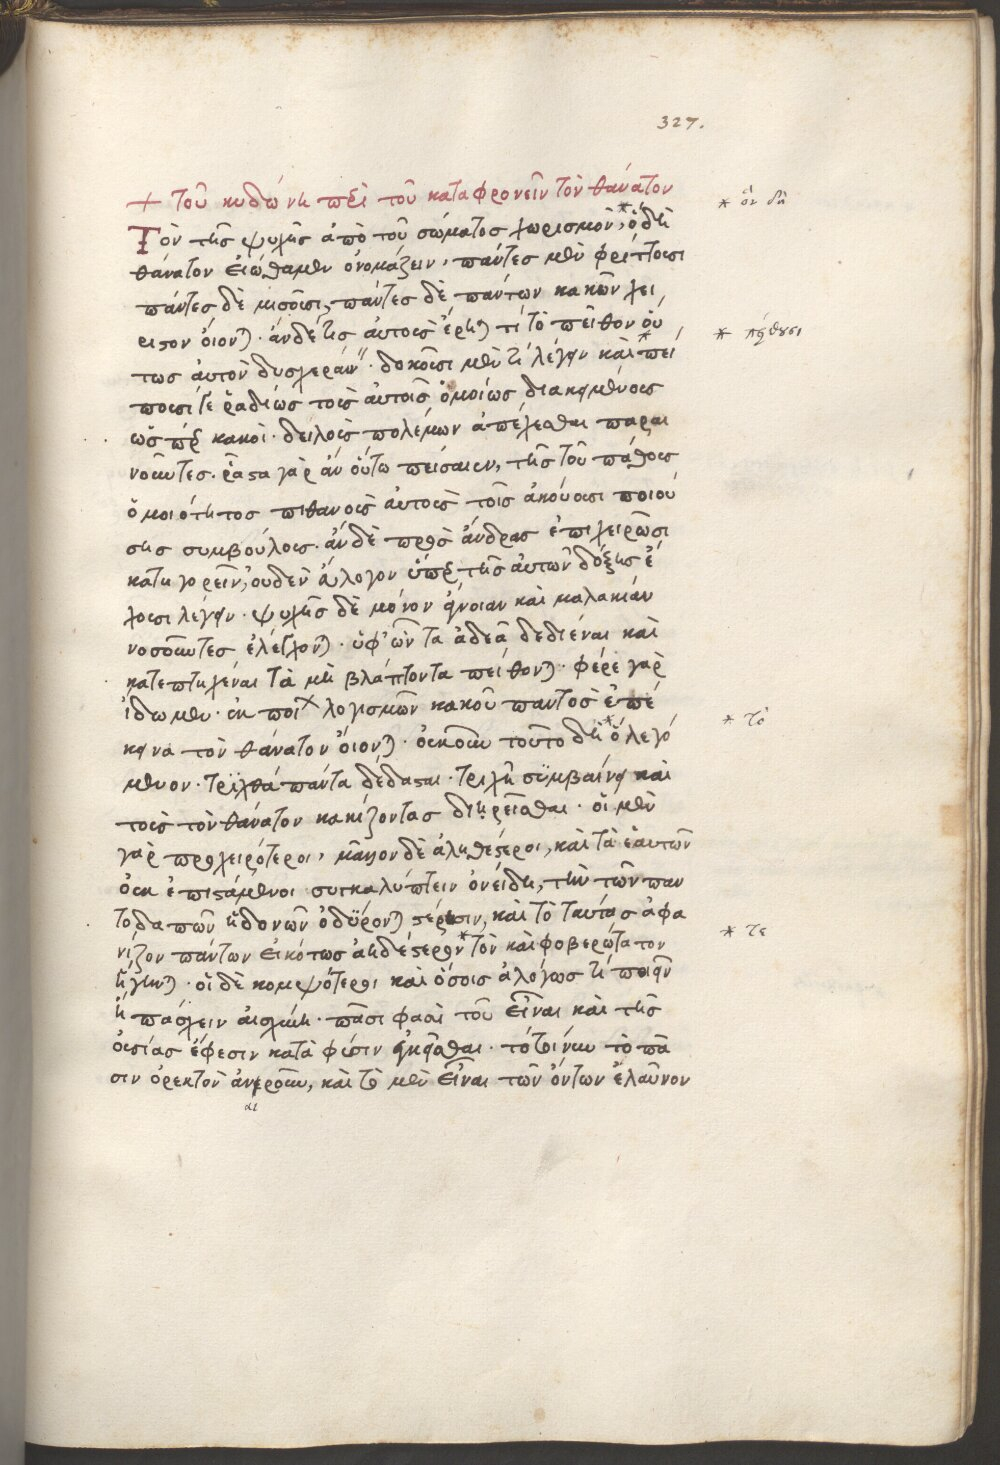 327.
+ τοῦ κυδώνη περὶ τοῦ καταφρονεῖν τὸν θάνατον
* ὃν δὴ
Τὸν τῆς ψυχῆς ἀπὸ τοῦ σώματος χωρισμὸν,* ὃ δὴ
θάνατον εἰώθαμεν ὀνομάζειν, πάντες μὲν φρίττουσι
πάντες δὲ μισοῦσι, πάντες δὲ πάντων κακῶν χεί
ριστον οἴονται. ἂν δέ τις αὐτοὺς ἔρηται τί τὸ πεῖθον οὕ
* πείθουσι
τως αὐτὸν δυσχεράν. δοκοῦσι μέν τι λέγειν καὶ* πεί
ποισί γε ῥαδίως τοὺς αὐτοῖς ὁμοίως διακειμένους
ὥσπερ κακοὶ. δειλοὺς πολέμων ἀπέχεσθαι παραι
νοῦντες. ῥᾷστα γὰρ ἂν οὕτω πείσαιεν, τῆς τοῦ πάθους
ὁμοιότητος πιθανοὺς αὐτοὺς τοῖς ἀκούουσι ποιού
σης συμβούλους. ἂν δὲ πρὸς ἄνδρας ἐπιχειρῶσι
κατηγορεῖν, οὐδὲν εὔλογον ὑπὲρ τῆς αὐτῶν δόξης ἔ
χουσι λέγειν. ψυχῆς δὲ μόνον ἄνοιαν καὶ μαλακίαν
νοσοῦντες ἐλέγχονται. ὑφ' ὧν τὰ ἀδεᾶ δεδιέναι καὶ
κατεπτηχέναι τὰ μὴ βλάπτοντα πείθονται. φέρε γὰρ
ἴδωμεν. ἐκ ποί× λογισμῶν κακοῦ παντὸς ἐπέ
* τὸ
κεινα τὸν θάνατον οἴονται. οὐκοῦν τοῦτο δὴ* ὃ λεγό
μενον. τριχθὰ πάντα δέδασται. τριχῆ συμβαίνει καὶ
τοὺς τὸν θάνατον κακίζοντας διῃρεῖσθαι. οἱ μὲν
γὰρ προχειρότεροι, μᾶλλον δὲ ἀληθέστεροι, καὶ τὰ ἑαυτῶν
οὐκ ἐπιστάμενοι συγκαλύπτειν ὀνείδη, τὴν τῶν παν
τοδαπῶν ἡδονῶν ὀδύρονται στέρησιν, καὶ τὸ ταύτας ἀφα
* τε
νίζον πάντων εἰκότως ἀηδέστερόν* τὸν καὶ φοβερώτατον
ἥγηνται. οἱ δὲ κομψότεροι καὶ ὅσοις ἀλόγως τι ποιεῖν
ἢ πάσχειν αἰσχύνη. πᾶσι φασὶ τοῦ εἶναι καὶ τῆς
οὐσίας ἔφεσιν κατὰ φύσιν ἐγκεῖσθαι. τὸ τοίνυν τὸ πᾶ
σιν ὀρεκτὸν ἀνεροῦν, καὶ τὸ μὲν εἶναι τῶν ὄντων ἐλαῦνον
αι